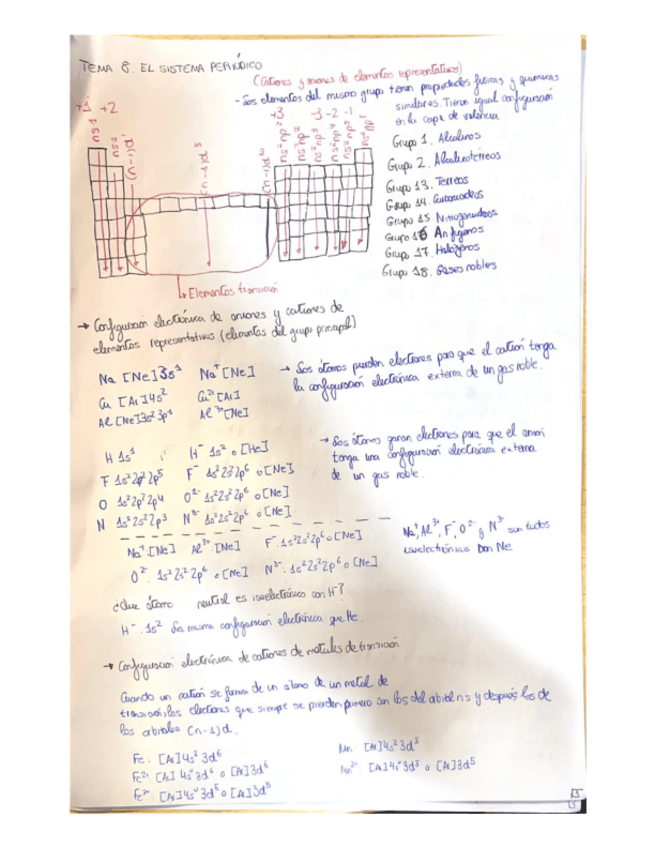 TEMA 8. EL SISTEMA PERIÓDICO
(Cationes y aniones de elementos representativos)
- Los elementos del mismo grupo tienen propiedades físicas y químicas
similares. Tienen igual configuración
en la capa de valencia
+1 +2 +3 -3 -2 -1
ns1 ns2 (n-1)d1 (n-1)d5 (n-1)d10 ns2np1 ns2np2 ns2np3 ns2np4 ns2np5 ns2np6
Grupo 1. Alcalinos
Grupo 2. Alcalinotérreos
Grupo 13. Térreos
Grupo 14. Carbonoideos
Grupo 15 Nitrogenoideos
Grupo 16 Anfígenos
Grupo 17. Halógenos
Grupo 18. Gases nobles
↳ Elementos transición
→ Configuración electrónica de aniones y cationes de
elementos representativos (elementos del grupo principal)
Na [Ne]3s1 Na+ [Ne]
Ca [Ar]4s2 Ca2+ [Ar]
Al [Ne]3s2 3p1 Al3+ [Ne]
→ Los átomos pierden electrones para que el catión tenga
la configuración electrónica externa de un gas noble.
H 1s1 H- 1s2 o [He]
F 1s2 2s2 2p5 F- 1s2 2s2 2p6 o [Ne]
O 1s2 2s2 2p4 O2- 1s2 2s2 2p6 o [Ne]
N 1s2 2s2 2p3 N3- 1s2 2s2 2p6 o [Ne]
→ Los átomos ganan electrones para que el anión
tenga una configuración electrónica externa
de un gas noble.
Na+: [Ne] Al3+: [Ne] F-: 1s2 2s2 2p6 o [Ne]
O2-: 1s2 2s2 2p6 o [Ne] N3-: 1s2 2s2 2p6 o [Ne]
Na+, Al3+, F-, O2- y N3- son todos
isoelectrónicos con Ne
¿Que átomo neutral es isoelectrónico con H-?
H-: 1s2 La misma configuración electrónica que He.
→ Configuración electrónica de cationes de metales de transición
Cuando un catión se forma de un átomo de un metal de
transición, los electrones que siempre se pierden primero son los del orbital ns y después los de
los orbitales (n-1)d.
Fe: [Ar]4s2 3d6
Fe2+: [Ar] 4s0 3d6 o [Ar]3d6
Fe3+: [Ar]4s0 3d5 o [Ar]3d5
Mn [Ar]4s2 3d5
Mn2+: [Ar]4s0 3d5 o [Ar]3d5